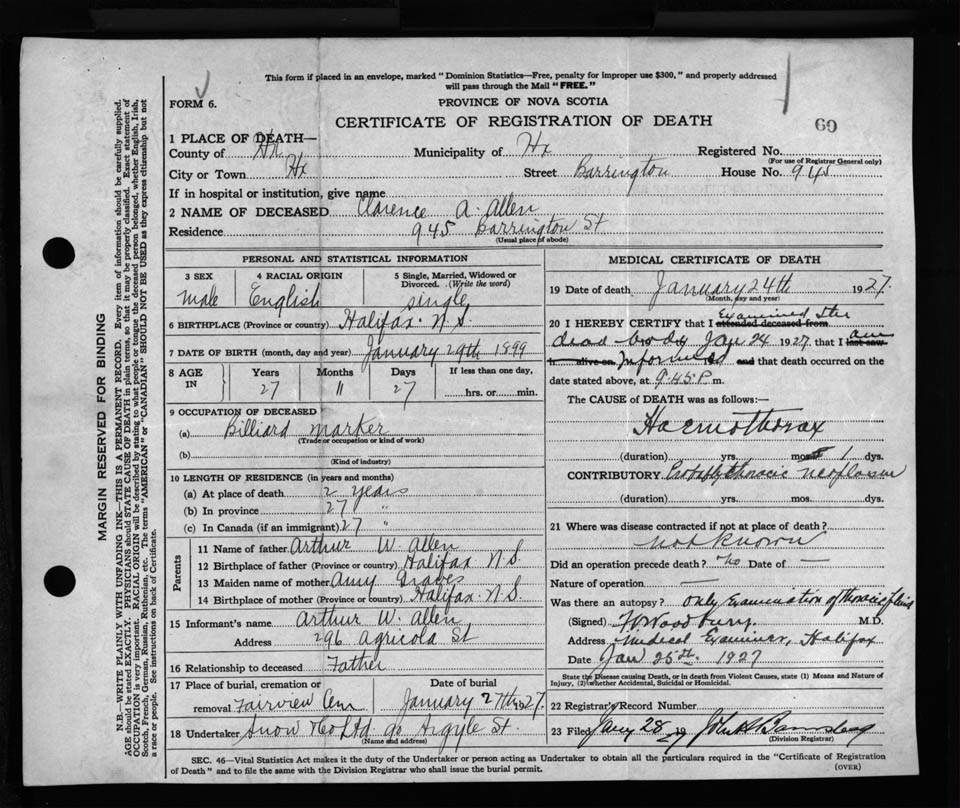 This form if placed in an envelope, marked "Dominion Statistics—Free, penalty for improper use $300," and properly addressed
will pass through the Mail "FREE."
FORM 6.
PROVINCE OF NOVA SCOTIA
CERTIFICATE OF REGISTRATION OF DEATH
69
1 PLACE OF DEATH—
County of Hx Municipality of Hx Registered No.
(For use of Registrar General only)
City or Town Hx Street Barrington House No. 945
If in hospital or institution, give name
2 NAME OF DECEASED Clarence A. Allen
Residence 945 Barrington St
(Usual place of abode)
PERSONAL AND STATISTICAL INFORMATION
3 SEX 4 RACIAL ORIGIN 5 Single, Married, Widowed or
Divorced. (Write the word)
Male English single
6 BIRTHPLACE (Province or country) Halifax. N.S.
7 DATE OF BIRTH (month, day and year) January 29th 1899
8 AGE IN Years Months Days If less than one day,
27 11 27 hrs. or min.
9 OCCUPATION OF DECEASED
(a) Billiard marker
(Trade or occupation or kind of work)
(b)
(Kind of industry)
10 LENGTH OF RESIDENCE (in years and months)
(a) At place of death 2 years
(b) In province 27 "
(c) In Canada (if an immigrant) 27 "
Parents
11 Name of father Arthur W. Allen
12 Birthplace of father (Province or country) Halifax N.S.
13 Maiden name of mother Amy Graves
14 Birthplace of mother (Province or country) Halifax. N.S.
15 Informant's name Arthur W. Allen
Address 296 Agricola St
16 Relationship to deceased Father
17 Place of burial, cremation or Date of burial
removal Fairview Cem January 27th 1927.
18 Undertaker Snow & Co Ltd 90 Argyle St.
(Name and address)
MEDICAL CERTIFICATE OF DEATH
19 Date of death January 24th 1927.
(Month, day and year)
20 I HEREBY CERTIFY that I attended deceased from Examined the
dead body Jan 24 1927 that I last saw am
h alive on Informed and that death occurred on the
date stated above, at 9.45 P. m.
The CAUSE of DEATH was as follows:—
Haemothorax
(duration) yrs. mos. 1 dys.
CONTRIBUTORY neoplasm
(duration) yrs. mos. dys.
21 Where was disease contracted if not at place of death?
not known
Did an operation precede death? No Date of —
Nature of operation —
Was there an autopsy? Only Examination of thoracic fluid
(Signed) Woodbury. M.D.
Address Medical Examiner, Halifax
Date Jan 25th. 1927
State the Disease causing Death, or in death from Violent Causes, state (1) Means and Nature of
Injury, (2) whether Accidental, Suicidal or Homicidal.
22 Registrar's Record Number
23 Filed Jany 28 19 John
(Division Registrar)
SEC. 46—Vital Statistics Act makes it the duty of the Undertaker or person acting as Undertaker to obtain all the particulars required in the "Certificate of Registration
of Death" and to file the same with the Division Registrar who shall issue the burial permit.
(OVER)
MARGIN RESERVED FOR BINDING
N.B.—WRITE PLAINLY WITH UNFADING INK—THIS IS A PERMANENT RECORD. Every item of information should be carefully supplied.
AGE should be stated EXACTLY. PHYSICIANS should STATE CAUSE OF DEATH in plain terms, so that it may be properly classified. Exact statement of
OCCUPATION is very important. RACIAL ORIGIN will be described by stating to what people or tongue the deceased person belonged, whether English, Irish,
Scotch, French, German, Russian, Ruthenian, etc. The terms "AMERICAN" or "CANADIAN" SHOULD NOT BE USED as they express citizenship but not
a race or people. See instructions on back of Certificate.